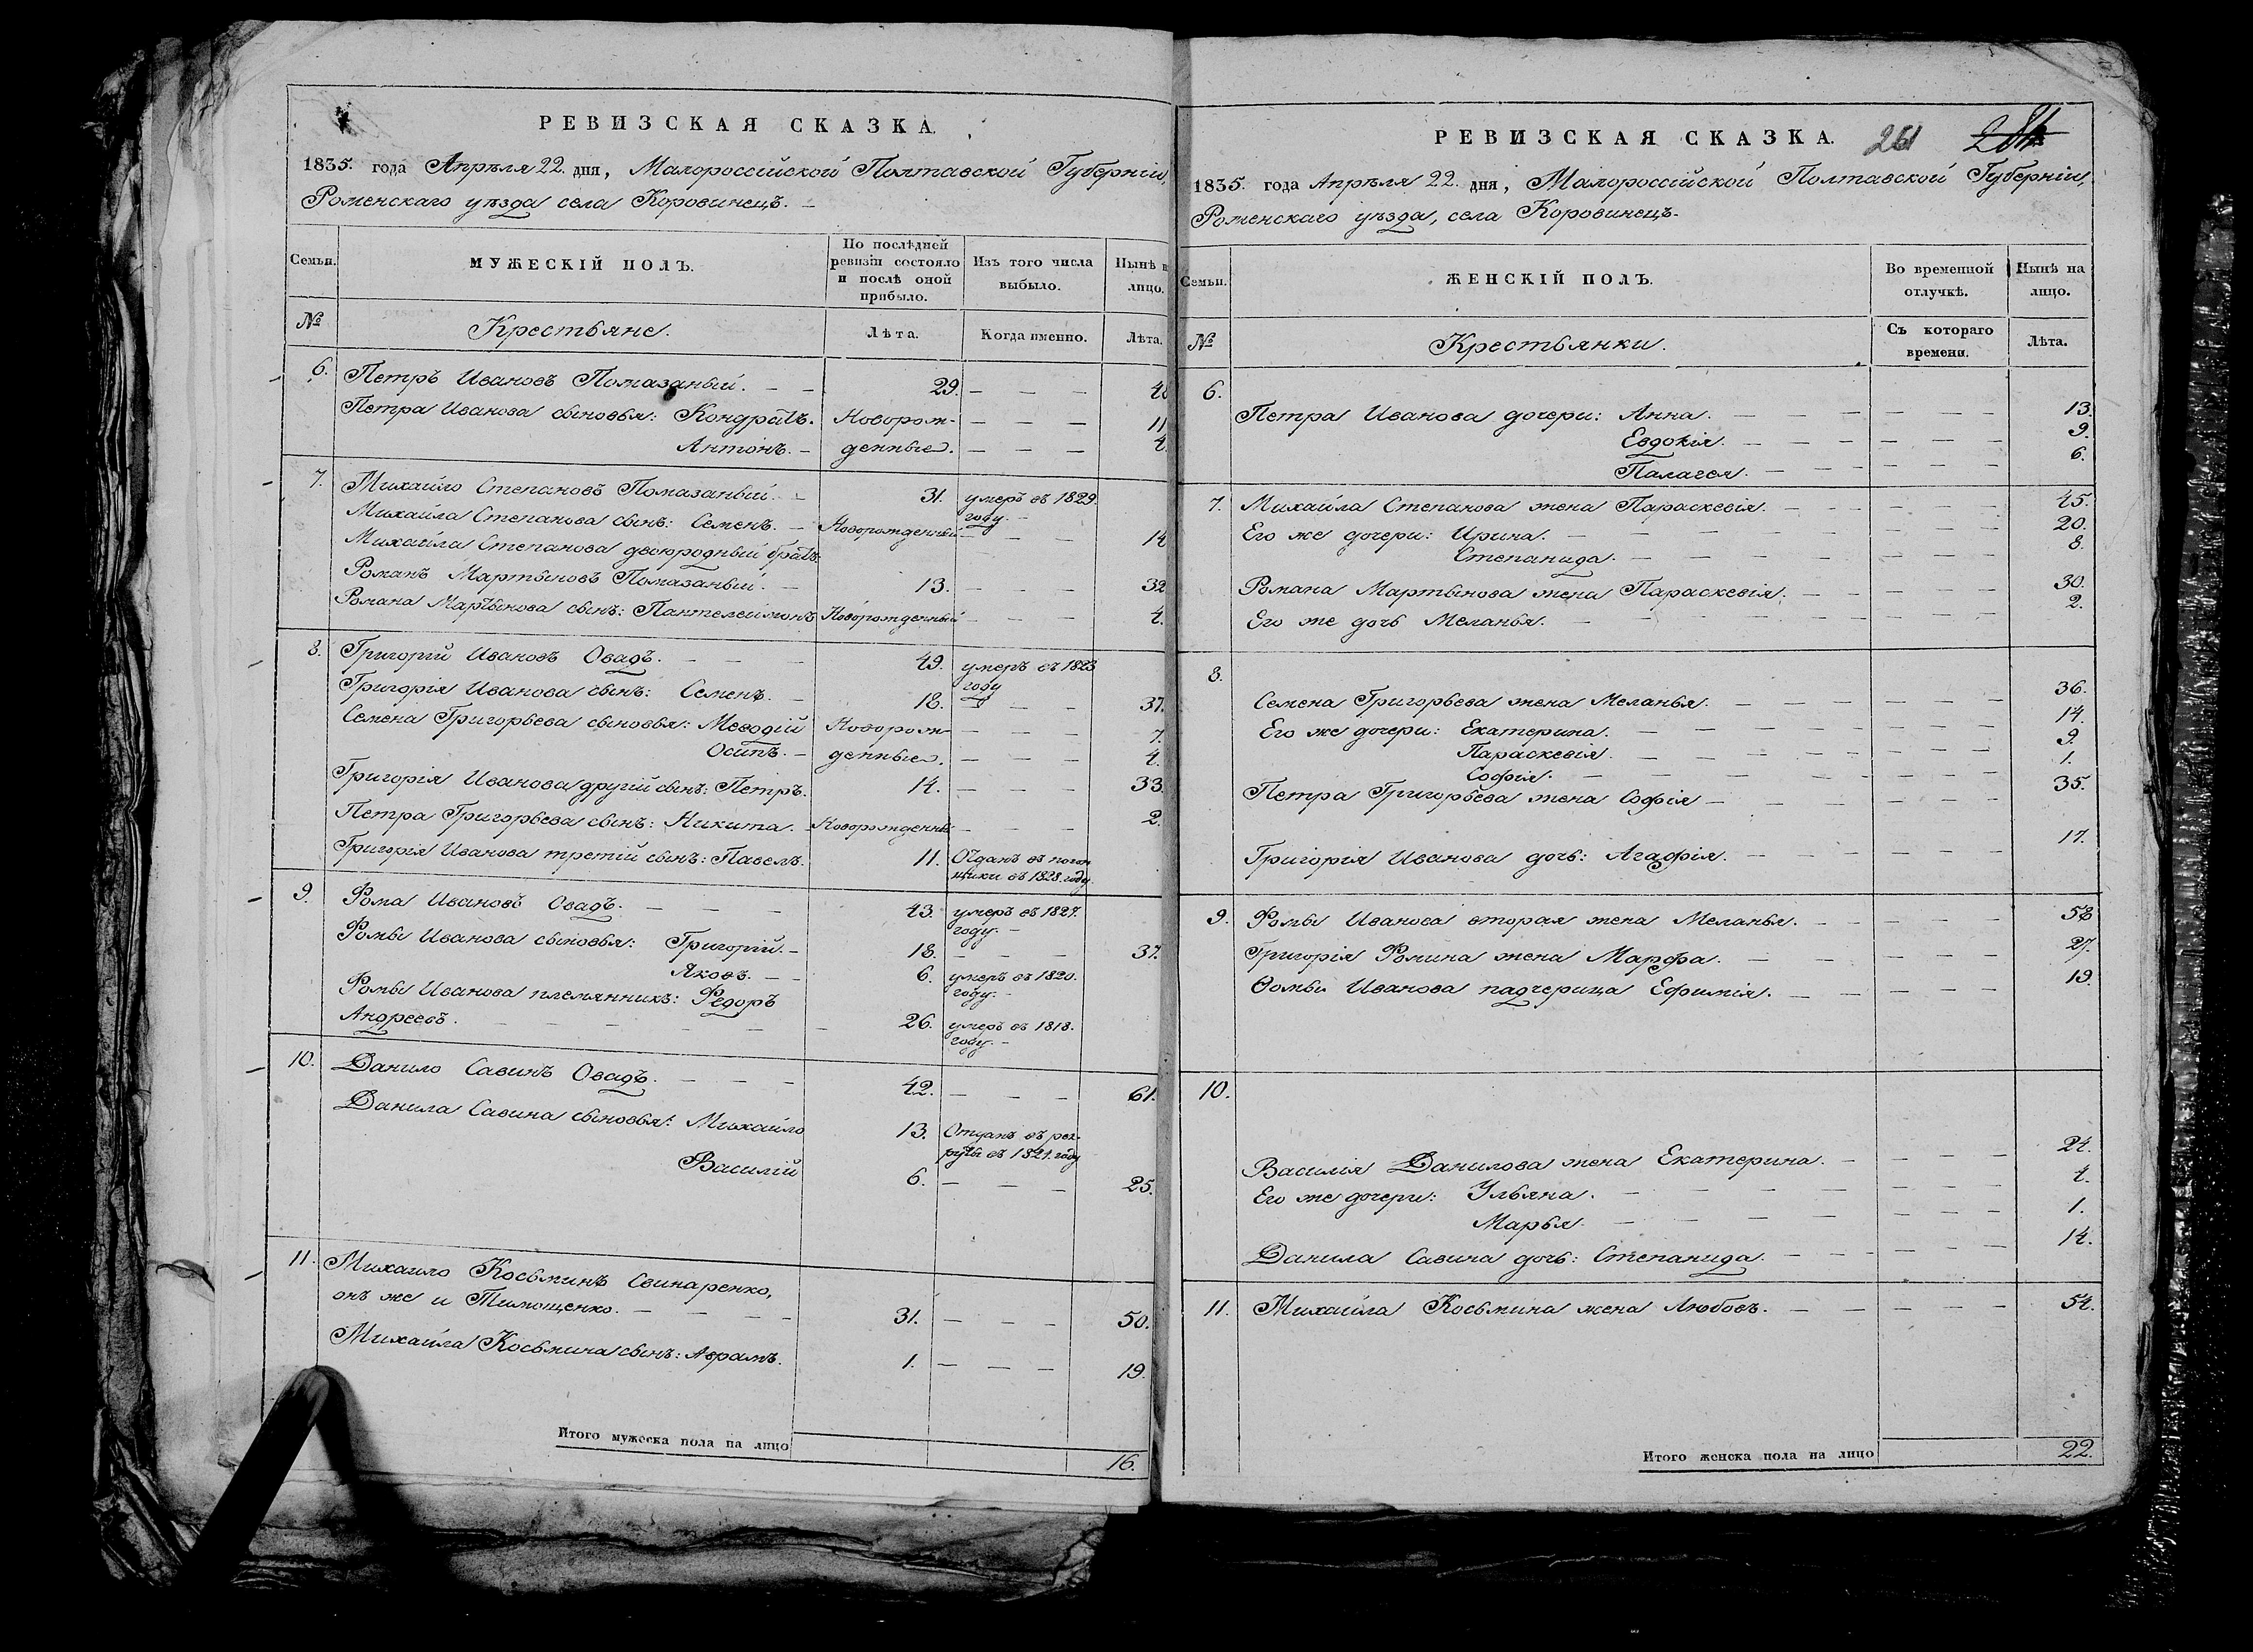 РЕВИЗСКАЯ СКАЗКА.
1835. года Апрѣля 22. дня, Малороссійской Полтавской Губерніи,
Роменскаго уѣзда села Коровинецъ. —
Семьи.
МУЖЕСКІЙ ПОЛЪ.
По послѣдней ревизіи состояло и послѣ оной прибыло.
Изъ того числа выбыло.
Нынѣ н лицо.
№
Крестьяне.
Лѣта.
Когда именно.
Лѣта.
6. Петръ Ивановъ Помазаный. — — 29. — — —
Петра Иванова сыновья: Кондратъ. Новорож- — — — 11
Антонъ. — денные. — — — 4
7. Михайло Степановъ Помазаный. — 31. умеръ въ 1829.
году. —
Михайла Степанова сынъ: Семенъ. — Новорожденный — — — 14
Михайла Степанова двоюродный братъ
Романъ Мартыновъ Помазаный. — 13. — — — 32
Романа Мартынова сынъ: Пантелеймонъ Новорожденный — — — 4.
8. Григорій Ивановъ Овадъ. — — — 49. умеръ въ 1823
году
Григорія Иванова сынъ: Семенъ. — 18. — — — 37.
Семена Григорьева сыновья: Меѳодій Новорож- — — — 7.
Осипъ. — денные. — — — 4.
Григорія Иванова другій сынъ: Петръ. 14. — — — 33.
Петра Григорьева сынъ: Никита. — Новорожденны — — — 2.
Григорія Иванова третій сынъ: Павелъ. 11. Отданъ въ погон
щики въ 1828. году.
9. Ѳома Ивановъ Овадъ. — — — 43. умеръ въ 1827.
году. —
Ѳомы Иванова сыновья: Григорій. — 18. — — — 37.
Яковъ. — — 6. умеръ въ 1820.
году. —
Ѳомы Иванова племянникъ: Ѳедоръ
Андреевъ. — — — — — — — 26. умеръ въ 1818.
году. —
10. Данило Савинъ Овадъ. — — — 42. — — — 61.
Данила Савина сыновья: Михайло 13. Отданъ въ рек-
руты въ 1821. году
Василій 6. — — — 25.
11. Михайло Косьминъ Свинаренко,
онъ же и Тимощенко. — — — 31. — — — 50.
Михайла Косьмина сынъ: Аврамъ. 1. — — — 19.
Итого мужеска пола на лицо
16.
РЕВИЗСКАЯ СКАЗКА. 261
1835. года Апрѣля 22. дня, Малороссійской Полтавской Губерніи,
Роменскаго уѣзда, села Коровинецъ.
Семьи.
ЖЕНСКІЙ ПОЛЪ.
Во временной отлучкѣ.
Нынѣ на лицо.
№
Крестьянки.
Съ котораго времени.
Лѣта.
6.
Петра Иванова дочери: Анна. — — — — — — 13.
Евдокія. — — — — — — 9.
Палагея. — — — — — — 6.
7. Михайла Степанова жена Параскевія. — — — — — — 45.
Его же дочери: Ирина. — — — — — — 20.
Степанида. — — — — — — 8.
Романа Мартынова жена Параскевія. — — — — — 30.
Его же дочь Меланья. — — — — — — 2.
8.
Семена Григорьева жена Меланья. — — — — — — 36.
Его же дочери: Екатерина. — — — — — — 14.
Параскевія. — — — — — — 9.
Софія. — — — — — — 1.
Петра Григорьева жена Софія — — — — — — 35.
Григорія Иванова дочь: Агафія. — — — — — — 17.
9. Ѳомы Иванова вторая жена Меланья. — — — — — 58
Григорія Ѳомина жена Марфа. — — — — — — 27.
Ѳомы Иванова падчерица Ефимія. — — — — — 19.
10.
Василія Данилова жена Екатерина. — — — — — 24.
Его же дочери: Ульяна. — — — — — — 4.
Марья. — — — — — — 1.
Данила Савина дочь: Степанида. — — — — — — 14.
11. Михайла Косьмина жена Любовь. — — — — — — 54.
Итого женска пола на лицо
22.